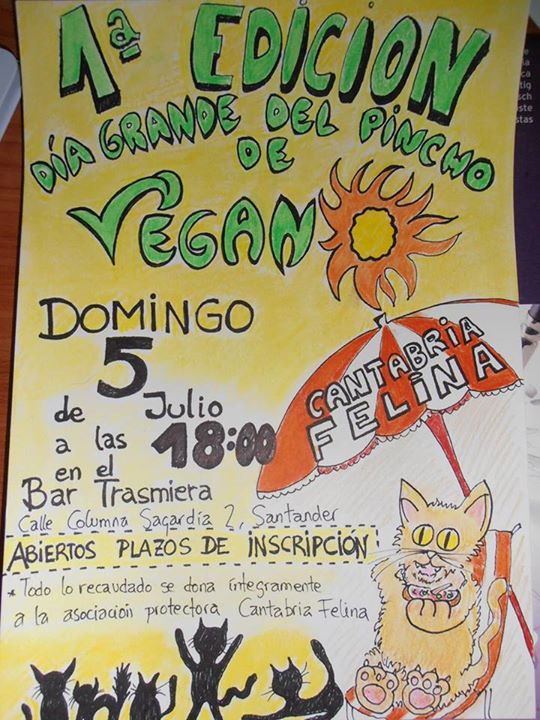 1ª EDICION
DÍA GRANDE DEL PINCHO
DE
VEGANO
DOMINGO
5
de Julio
a las 18:00
en el
Bar Trasmiera
Calle Columna Sagardía 2, Santander
ABIERTOS PLAZOS DE INSCRIPCIÓN
* Todo lo recaudado se dona íntegramente
a la asociación protectora Cantabria Felina
CANTABRIA
FELINA